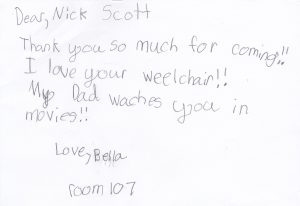 Dear, Nick Scott
Thank you so much for coming!!
I love your weelchair!!
My Dad waches you in
movies!!
Love, Bella
room 107